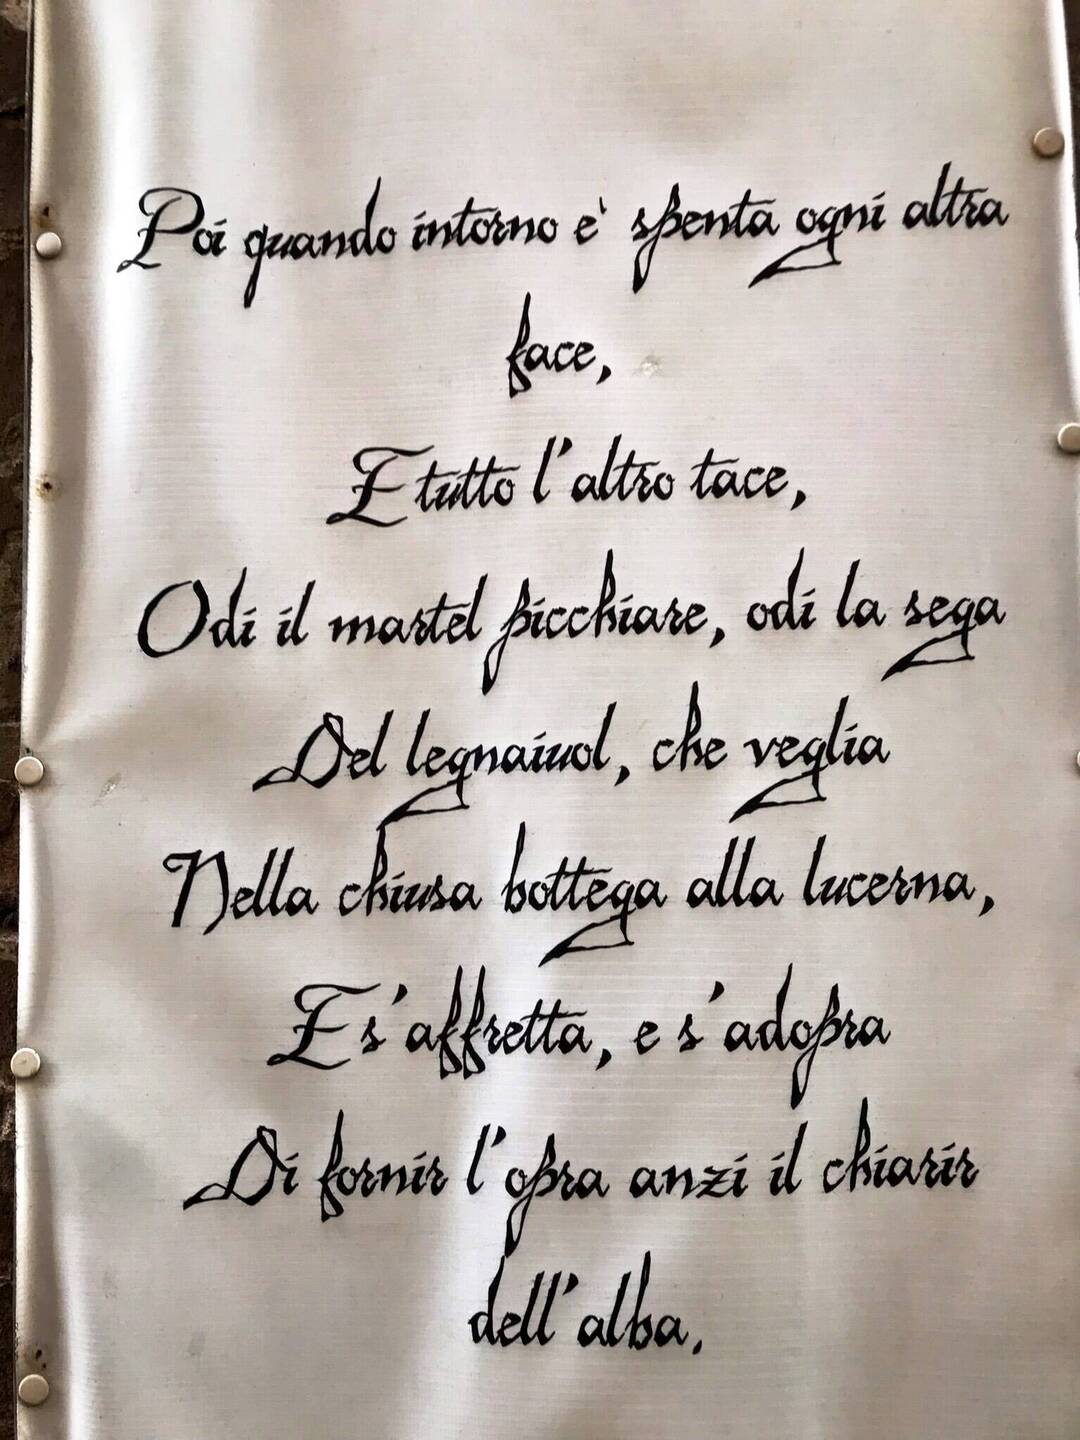 Poi quando intorno è spenta ogni altra
face,
E tutto l'altro tace,
Odi il martel picchiare, odi la sega
Del legnaiuol, che veglia
Nella chiusa bottega alla lucerna,
E s'affretta, e s'adopra
Di fornir l'opra anzi il chiarir
dell'alba.